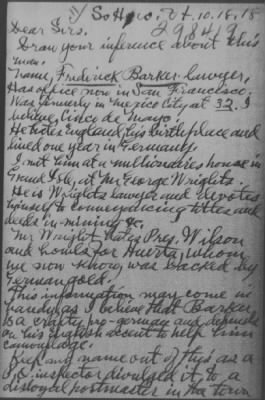 So Hero, Vt. 10.18.18
29849
Dear Sirs.
Draw your inference about this
man.
Name, Fredrick Barker. lawyer,
Has office now in San Francisco.
Was formerly in Mexico City at 32. I
believe, Cinco de Mayo.
He hates England, his birthplace and
lived one year in Germany.
I met him at a millionaires house in
Grand Isle, at Mr George Wrights.
He is Wrights lawyer and devotes
himself to conveyancing titles and
deeds in mining &c.
Mr Wright hates Pres. Wilson
and howls for Huerta, whom
we now know, was backed by
German gold.
This information may come in
handy as I believe that Barker
is a crafty pro-german and depends
on his English accent to help him
camouflage.
Keep my name out of this as a
P.O. inspector divulged it to a
disloyal postmaster in the town